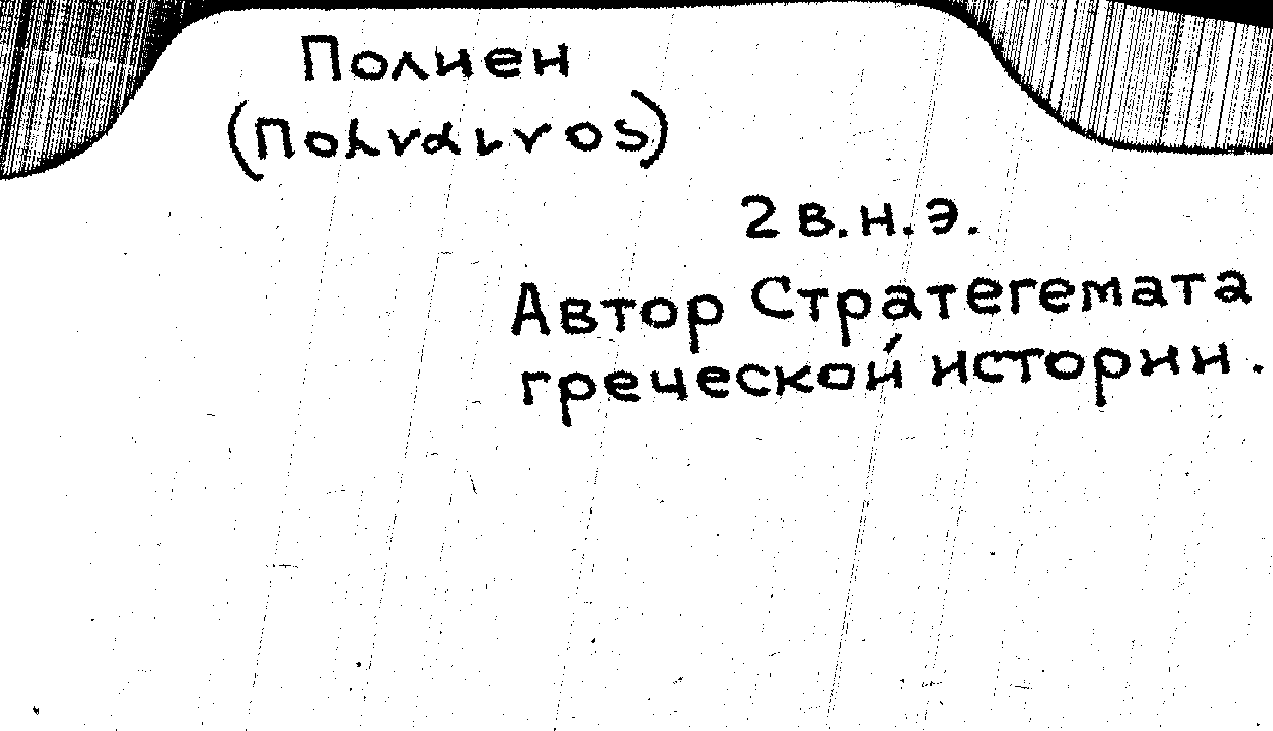 Полиен
(Πολναινος)
2 в. н. э.
Автор Стратегемата
греческой истории.